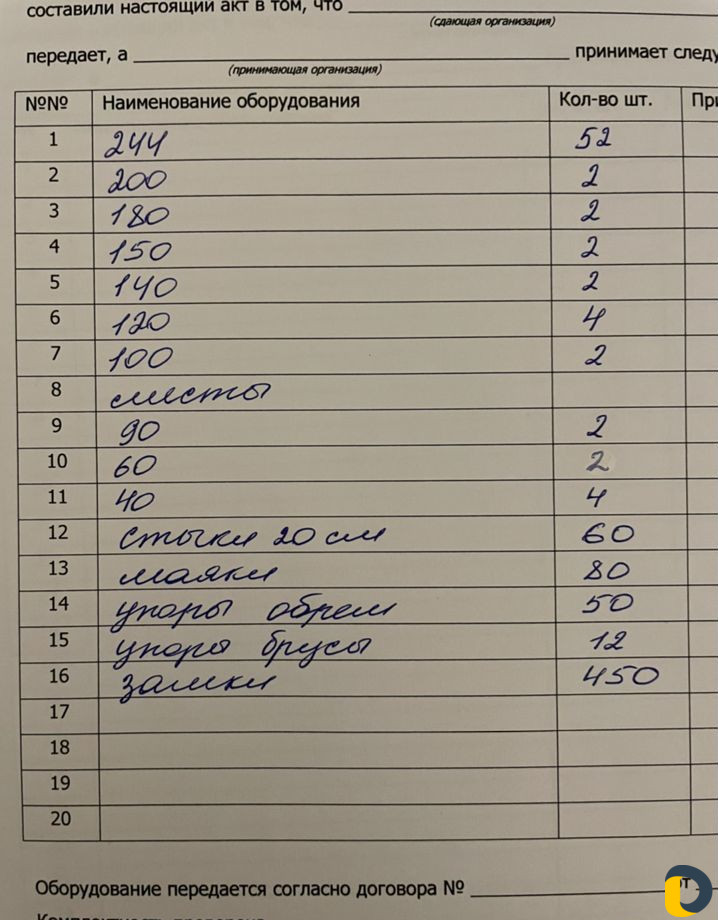 составили настоящий акт в том, что
(сдающая организация)
передает, а принимает следу
(принимающая организация)
№№ Наименование оборудования Кол-во шт. При
1 244 52
2 200 2
3 180 2
4 150 2
5 140 2
6 120 4
7 100 2
8 листы
9 90 2
10 60 2
11 40 4
12 стыки 20 см 60
13 маяки 80
14 упоры обрем 50
15 упоры брусы 12
16 замки 450
17
18
19
20
Оборудование передается согласно договора № от